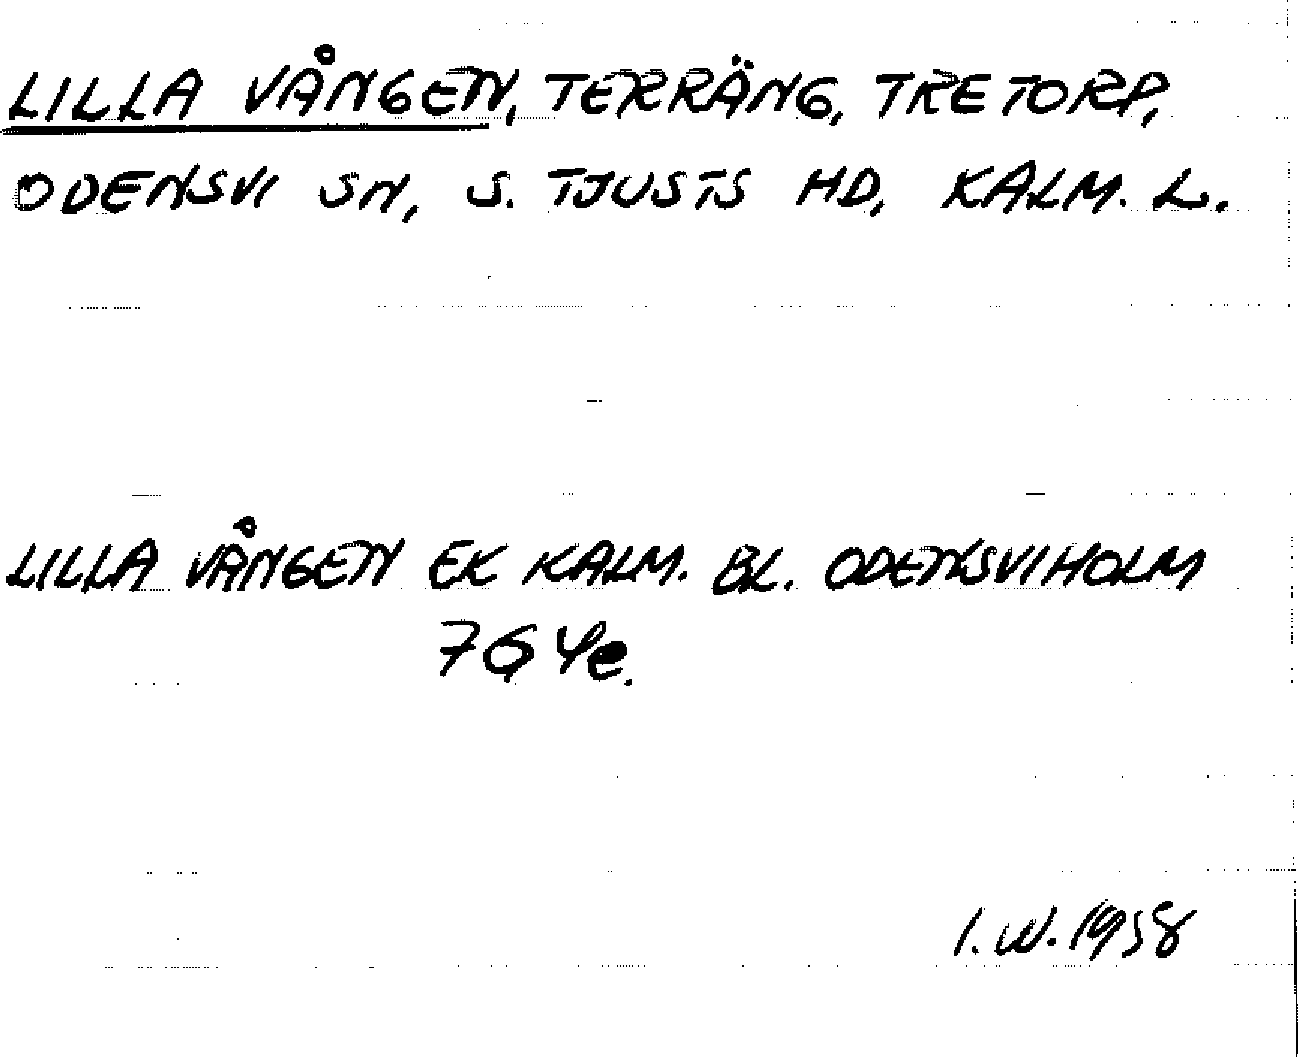 LILLA VÅNGEN, TERRÄNG, TRETORP,
ODENSVI SN, S. TJUSTS HD, KALM. L.
LILLA VÅNGEN EK KALM. BL. ODENSVIHOLM
7G 4e.
I.W. 1958